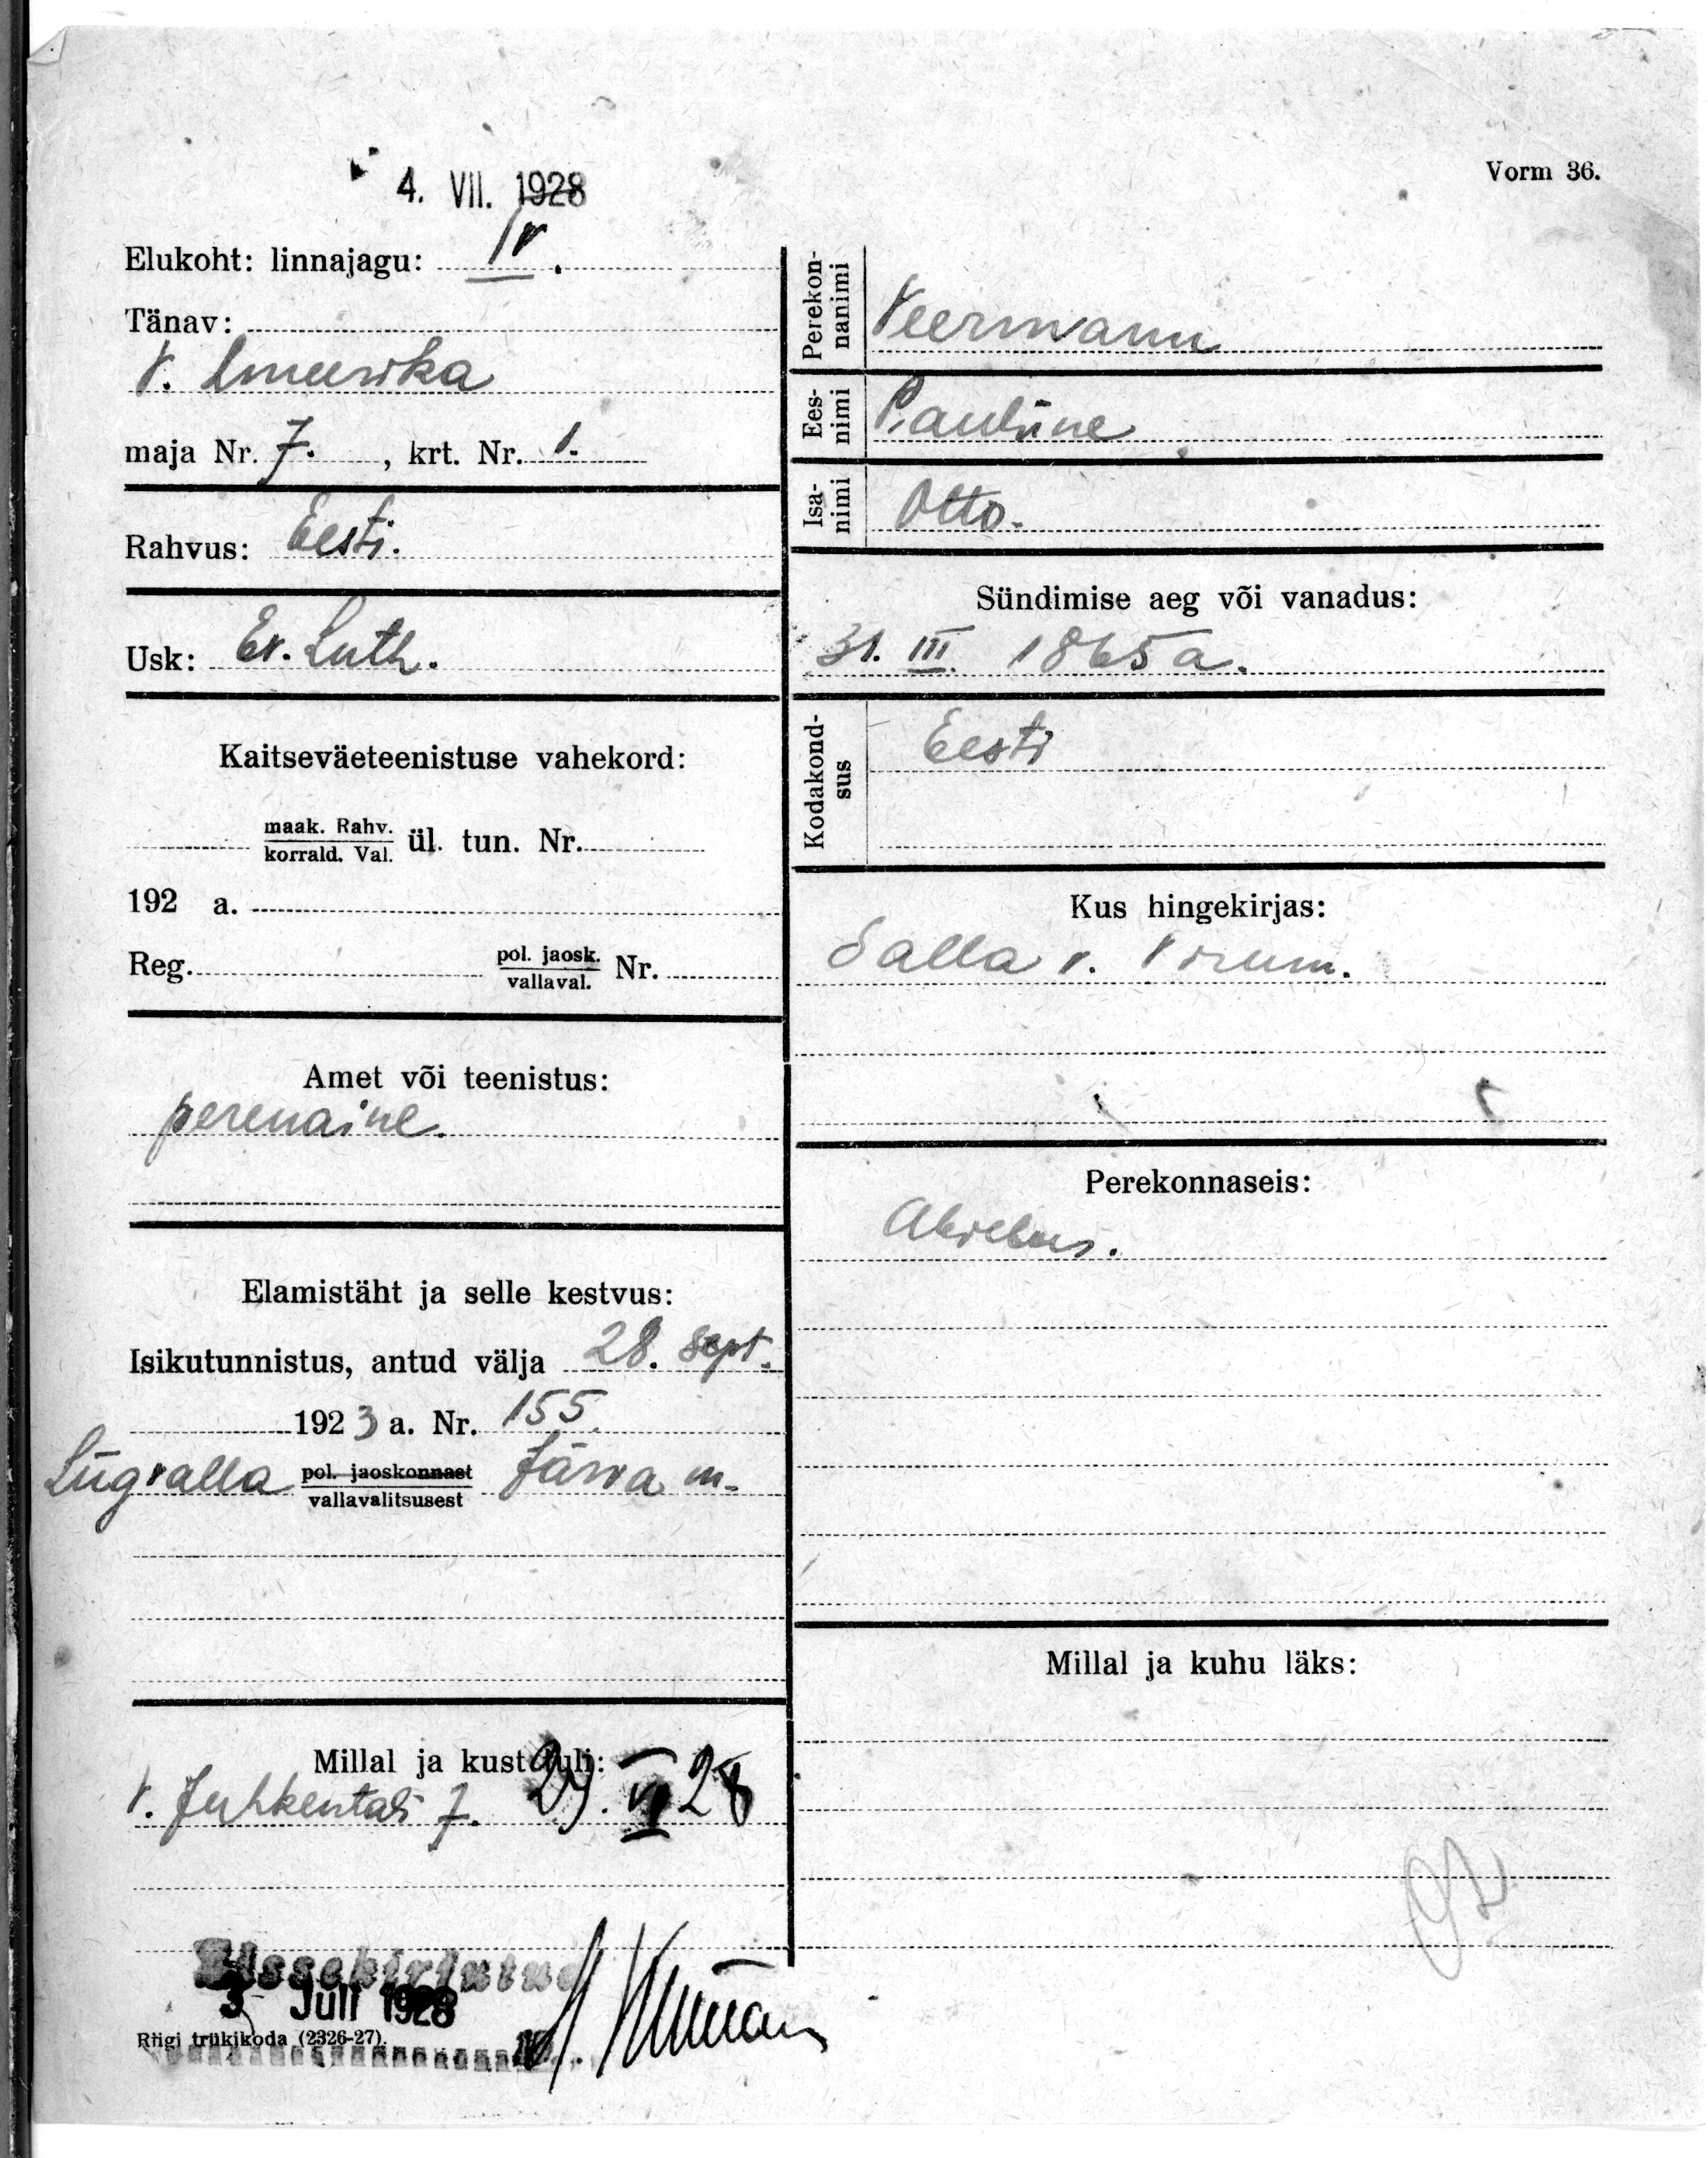 4. VII. 1928
Vorm 36.
Elukoht: linnajagu: IV.
Tänav:
V. Ameerika
maja Nr. 7. , krt. Nr. 1.
Rahvus: Eesti.
Usk: Ev. Luth.
Kaitseväeteenistuse vahekord:
maak. Rahv.
korrald. Val. ül. tun. Nr.
192 a.
Reg. pol. jaosk.
vallaval. Nr.
Amet või teenistus:
perenaine.
Elamistäht ja selle kestvus:
Isikutunnistus, antud välja 28. sept.
1923 a. Nr. 155.
pol. jaoskonnast Järva m.
vallavalitsusest
Millal ja kust tuli:
V. Juhkentali 7. 29. VI 28
Sissekirjutud
3 Juli 1928
Riigi trükikoda (2326-27).
Perekon-
nanimi
Veermann
Ees-
nimi
Pauliine
Isa-
nimi
Otto.
Sündimise aeg või vanadus:
31. III. 1865 a.
Kodakond-
sus
Eesti
Kus hingekirjas:
Salla v. Virum.
Perekonnaseis:
Abielus.
Millal ja kuhu läks: